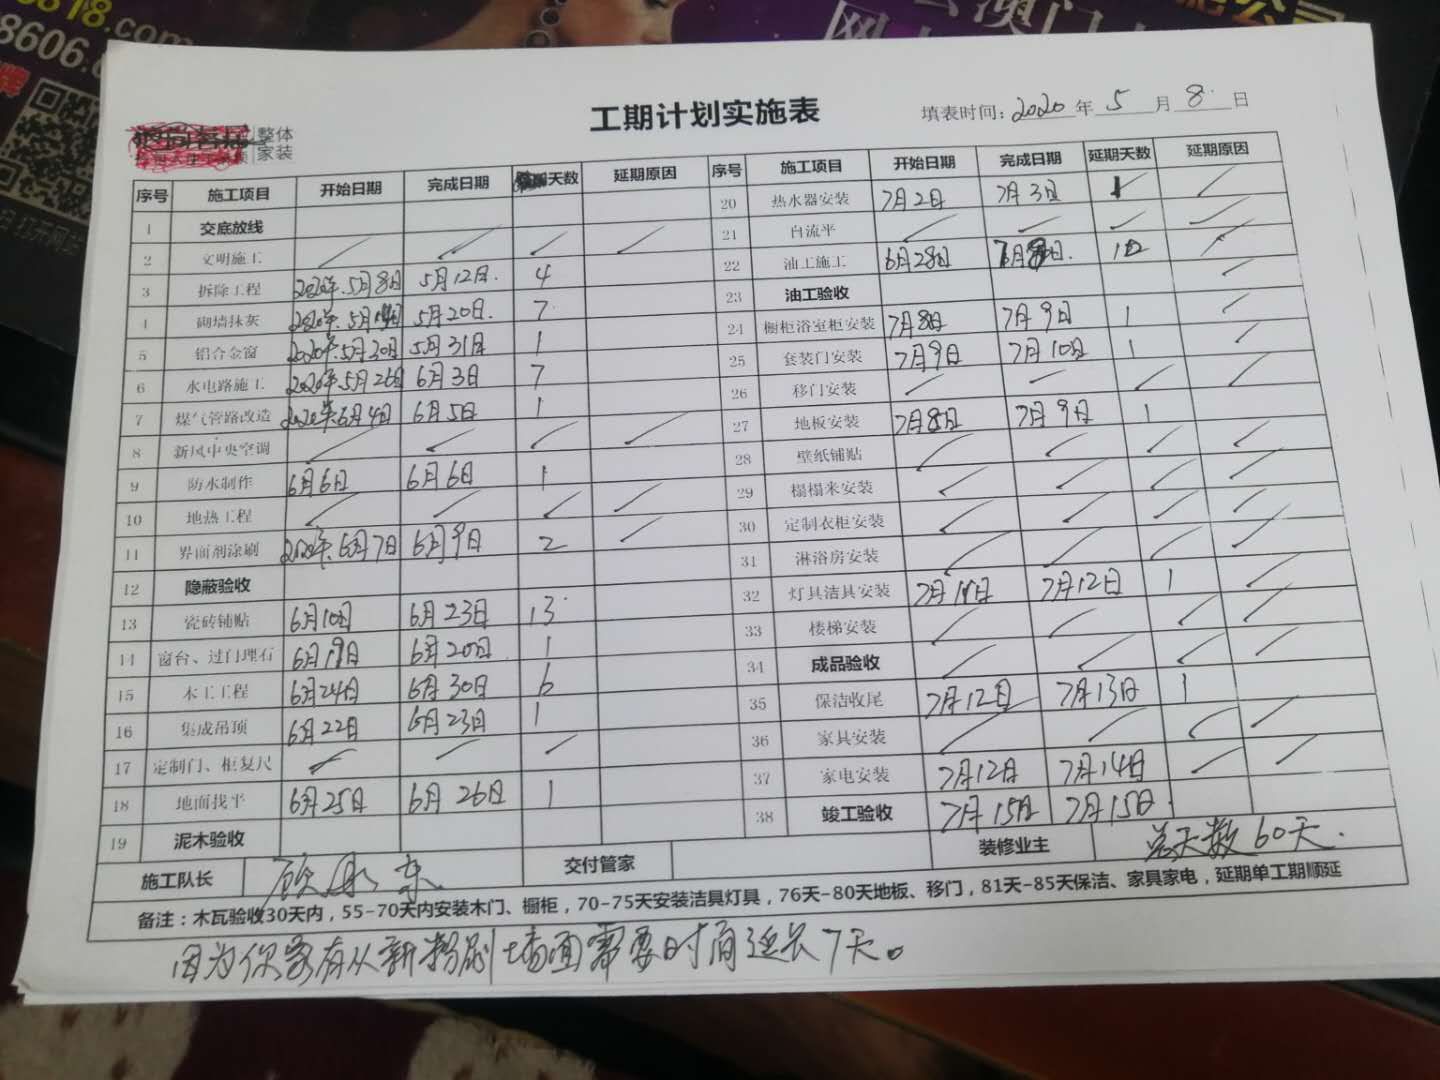 8606.
工期计划实施表
填表时间：2020年5月8日
整体
家装
序号 施工项目 开始日期 完成日期 天数 延期原因 序号 施工项目 开始日期 完成日期 延期天数 延期原因
1 交底放线
2 文明施工
3 拆除工程 2020年.5月8日 5月12日. 4
4 砌墙抹灰 5月20日. 7
5 铝合金窗 2020年.5月30日 5月31日 1
6 水电路施工 2020年.5月26日 6月3日 7
7 煤气管路改造 2020年6月4日 6月5日 1
8 新风中央空调
9 防水制作 6月6日 6月6日 1
10 地热工程
11 界面剂涂刷 2020年.6月7日 6月9日 2
12 隐蔽验收
13 瓷砖铺贴 6月10日 6月23日 13
14 窗台、过门理石 6月19日 6月20日. 1
15 木工工程 6月24日 6月30日 6
16 集成吊顶 6月22日 6月23日 1
17 定制门、柜复尺
18 地面找平 6月25日 6月26日 1
19 泥木验收
20 热水器安装 7月2日 7月3日 1
21 自流平
22 油工施工 6月28日 10
23 油工验收
24 橱柜浴室柜安装 7月8日 7月9日 1
25 套装门安装 7月9日 7月10日 1
26 移门安装
27 地板安装 7月8日 7月9日 1
28 壁纸铺贴
29 榻榻米安装
30 定制衣柜安装
31 淋浴房安装
32 灯具洁具安装 7月11日 7月12日 1
33 楼梯安装
34 成品验收
35 保洁收尾 7月12日 7月13日 1
36 家具安装
37 家电安装 7月12日 7月14日
38 竣工验收 7月15日 7月15日.
施工队长 交付管家 装修业主 总天数60天.
备注：木瓦验收30天内，55-70天内安装木门、橱柜，70-75天安装洁具灯具，76天-80天地板、移门，81天-85天保洁、家具家电，延期单工期顺延
因为你家有从新粉刷墙面需要时间延长7天。